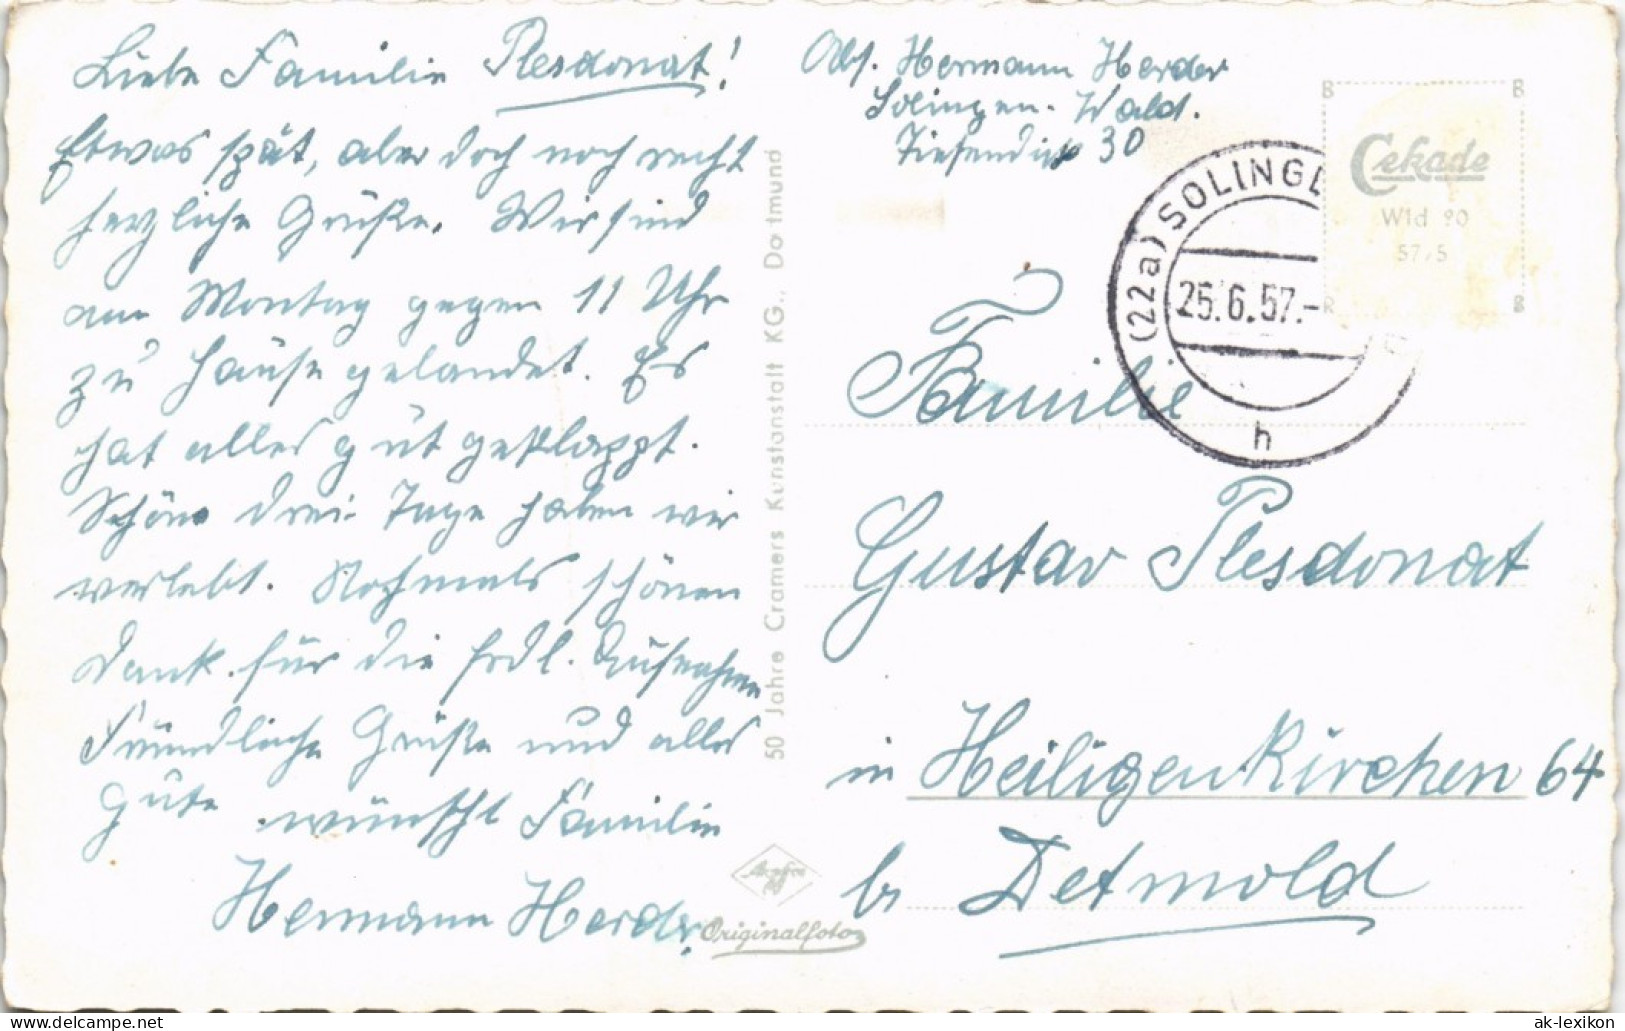 Liebe Familie Plesdonat!
Etwas spät, aber doch noch recht
herzliche Grüße. Wir sind
am Montag gegen 11 Uhr
zu Hause gelandet. Es
hat alles gut geklappt.
Schöne drei Tage haben wir
verlebt. Nochmals schönen
Dank für die frdl. Aufnahme
Freundliche Grüße und alles
Gute wünscht Familie
Hermann Herder.
50 Jahre Cramers Kunstanstalt KG., Dortmund
Originalfoto
Abs. Hermann Herder
Solingen-Wald.
30
(22a) SOLINGE
25.6.57.-
h
B B
Cekade
Wld 90
57,5
R B
Familie
Gustav Plesdonat
in Heiligenkirchen 64
b/ Detmold
ak-lexikon.com